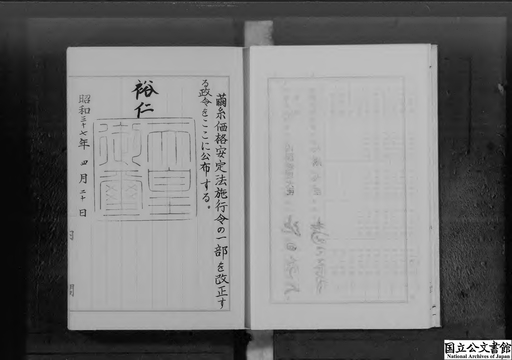 繭糸価格安定法施行令の一部を改正す
る政令をここに公布する。
裕仁
天皇御璽
昭和三十七年四月二十日
国立公文書館
National Archives of Japan